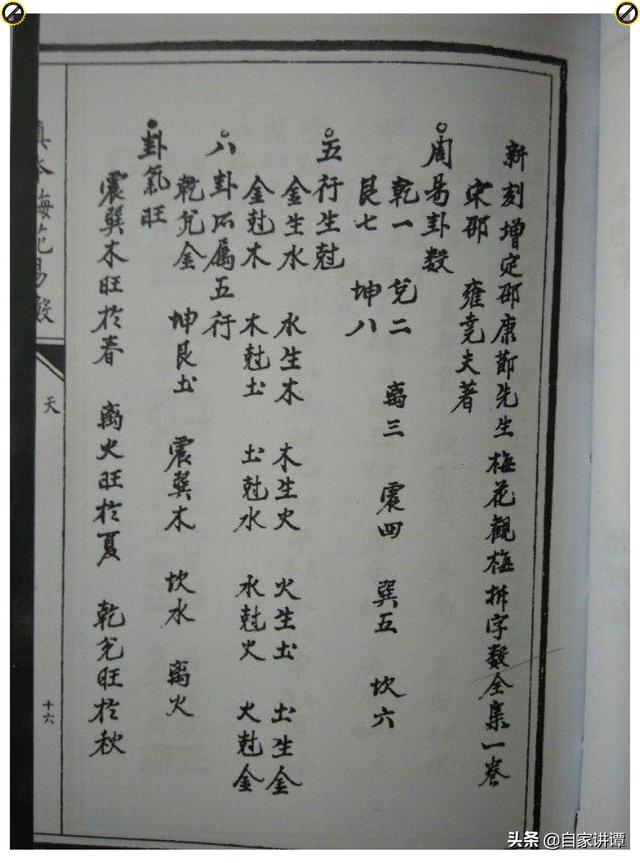 新刻增定邵康節先生梅花觀梅拆字数全集一卷
宋邵 雍堯夫著
周易卦数
乾一 兌二 离三 震四 巽五 坎六
艮七 坤八
五行生尅
金生水 水生木 木生火 火生土 土生金
金尅木 木尅土 土尅水 水尅火 火尅金
八卦所属五行
乾兌金 坤艮土 震巽木 坎水 离火
卦氣旺
震巽木旺於春 离火旺於夏 乾兌旺於秋
真本梅花易數
天
十六
头条 @自家讲谭